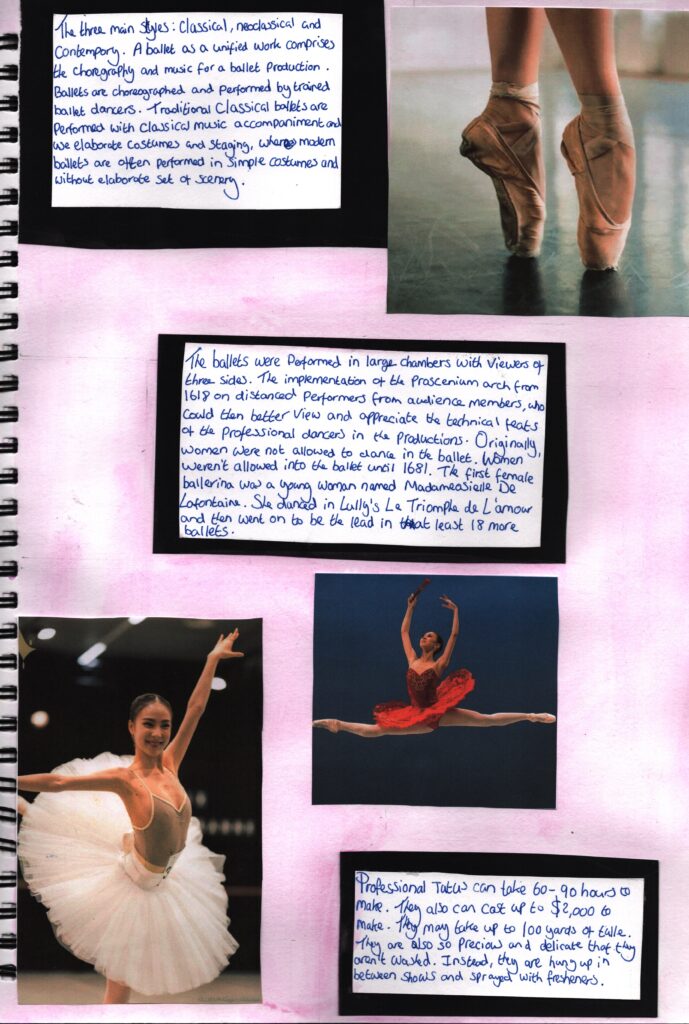 The three main styles: Classical, neoclassical and
Contempory. A ballet as a unified work comprises
the choregraphy and music for a ballet Production.
Ballets are choreographed and Performed by trained
ballet dancers. Traditional Classical ballets are
Performed with Classical music accompaniment and
use elaborate Costumes and Staging, where modern
ballets are often performed in Simple costumes and
without elaborate set of scenery.
The ballets were Performed in large chambers with Viewers of
three sides. The implementation of the Proscenium arch from
1618 on distanced Performers from audience members, who
Could then better View and appreciate the technical feats
of the Professional dancers in the Productions. Originally,
women were not allowed to dance in the ballet. Women
weren't allowed into the ballet until 1681. The first female
ballerina was a young woman named Madameosielle De
Lafontaine. She danced in Lully's Le Triomphe de L'amour
and then went on to be the lead in at least 18 more
ballets.
Professional Tutus can take 60-90 hours to
make. They also can cost up to $2,000 to
make. They may take up to 100 yards of tulle.
They are also so Precious and delicate that they
aren't washed. Instead, they are hung up in
between shows and sprayed with fresheners.